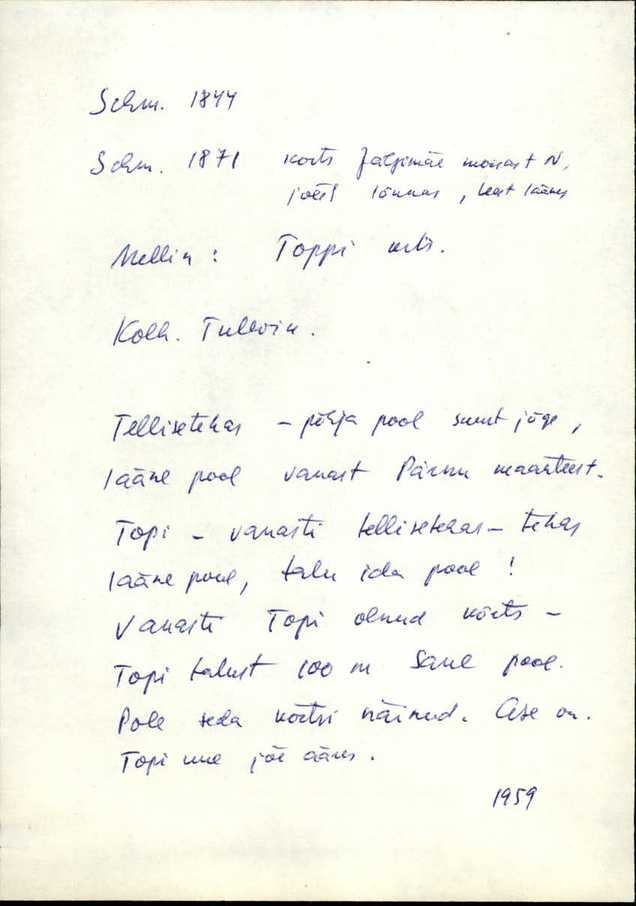 Schm. 1844
Schm. 1871 kõrts Jälgimäe mõisast N,
jõest lõunas, teest läänes
Mellin: Toppi krts.
Kolh. Tulevik.
Tellisetehas – põhja pool suurt jõge,
lääne pool vanast Pärnu maanteest.
Topi – vanasti tellisetehas – tehas
lääne pool, talu ida pool!
Vanasti Topi olnud kõrts –
Topi talust 100 m Saue pool.
Pole seda kõrtsi näinud. Ase on.
Topi jõe ääres.
1959